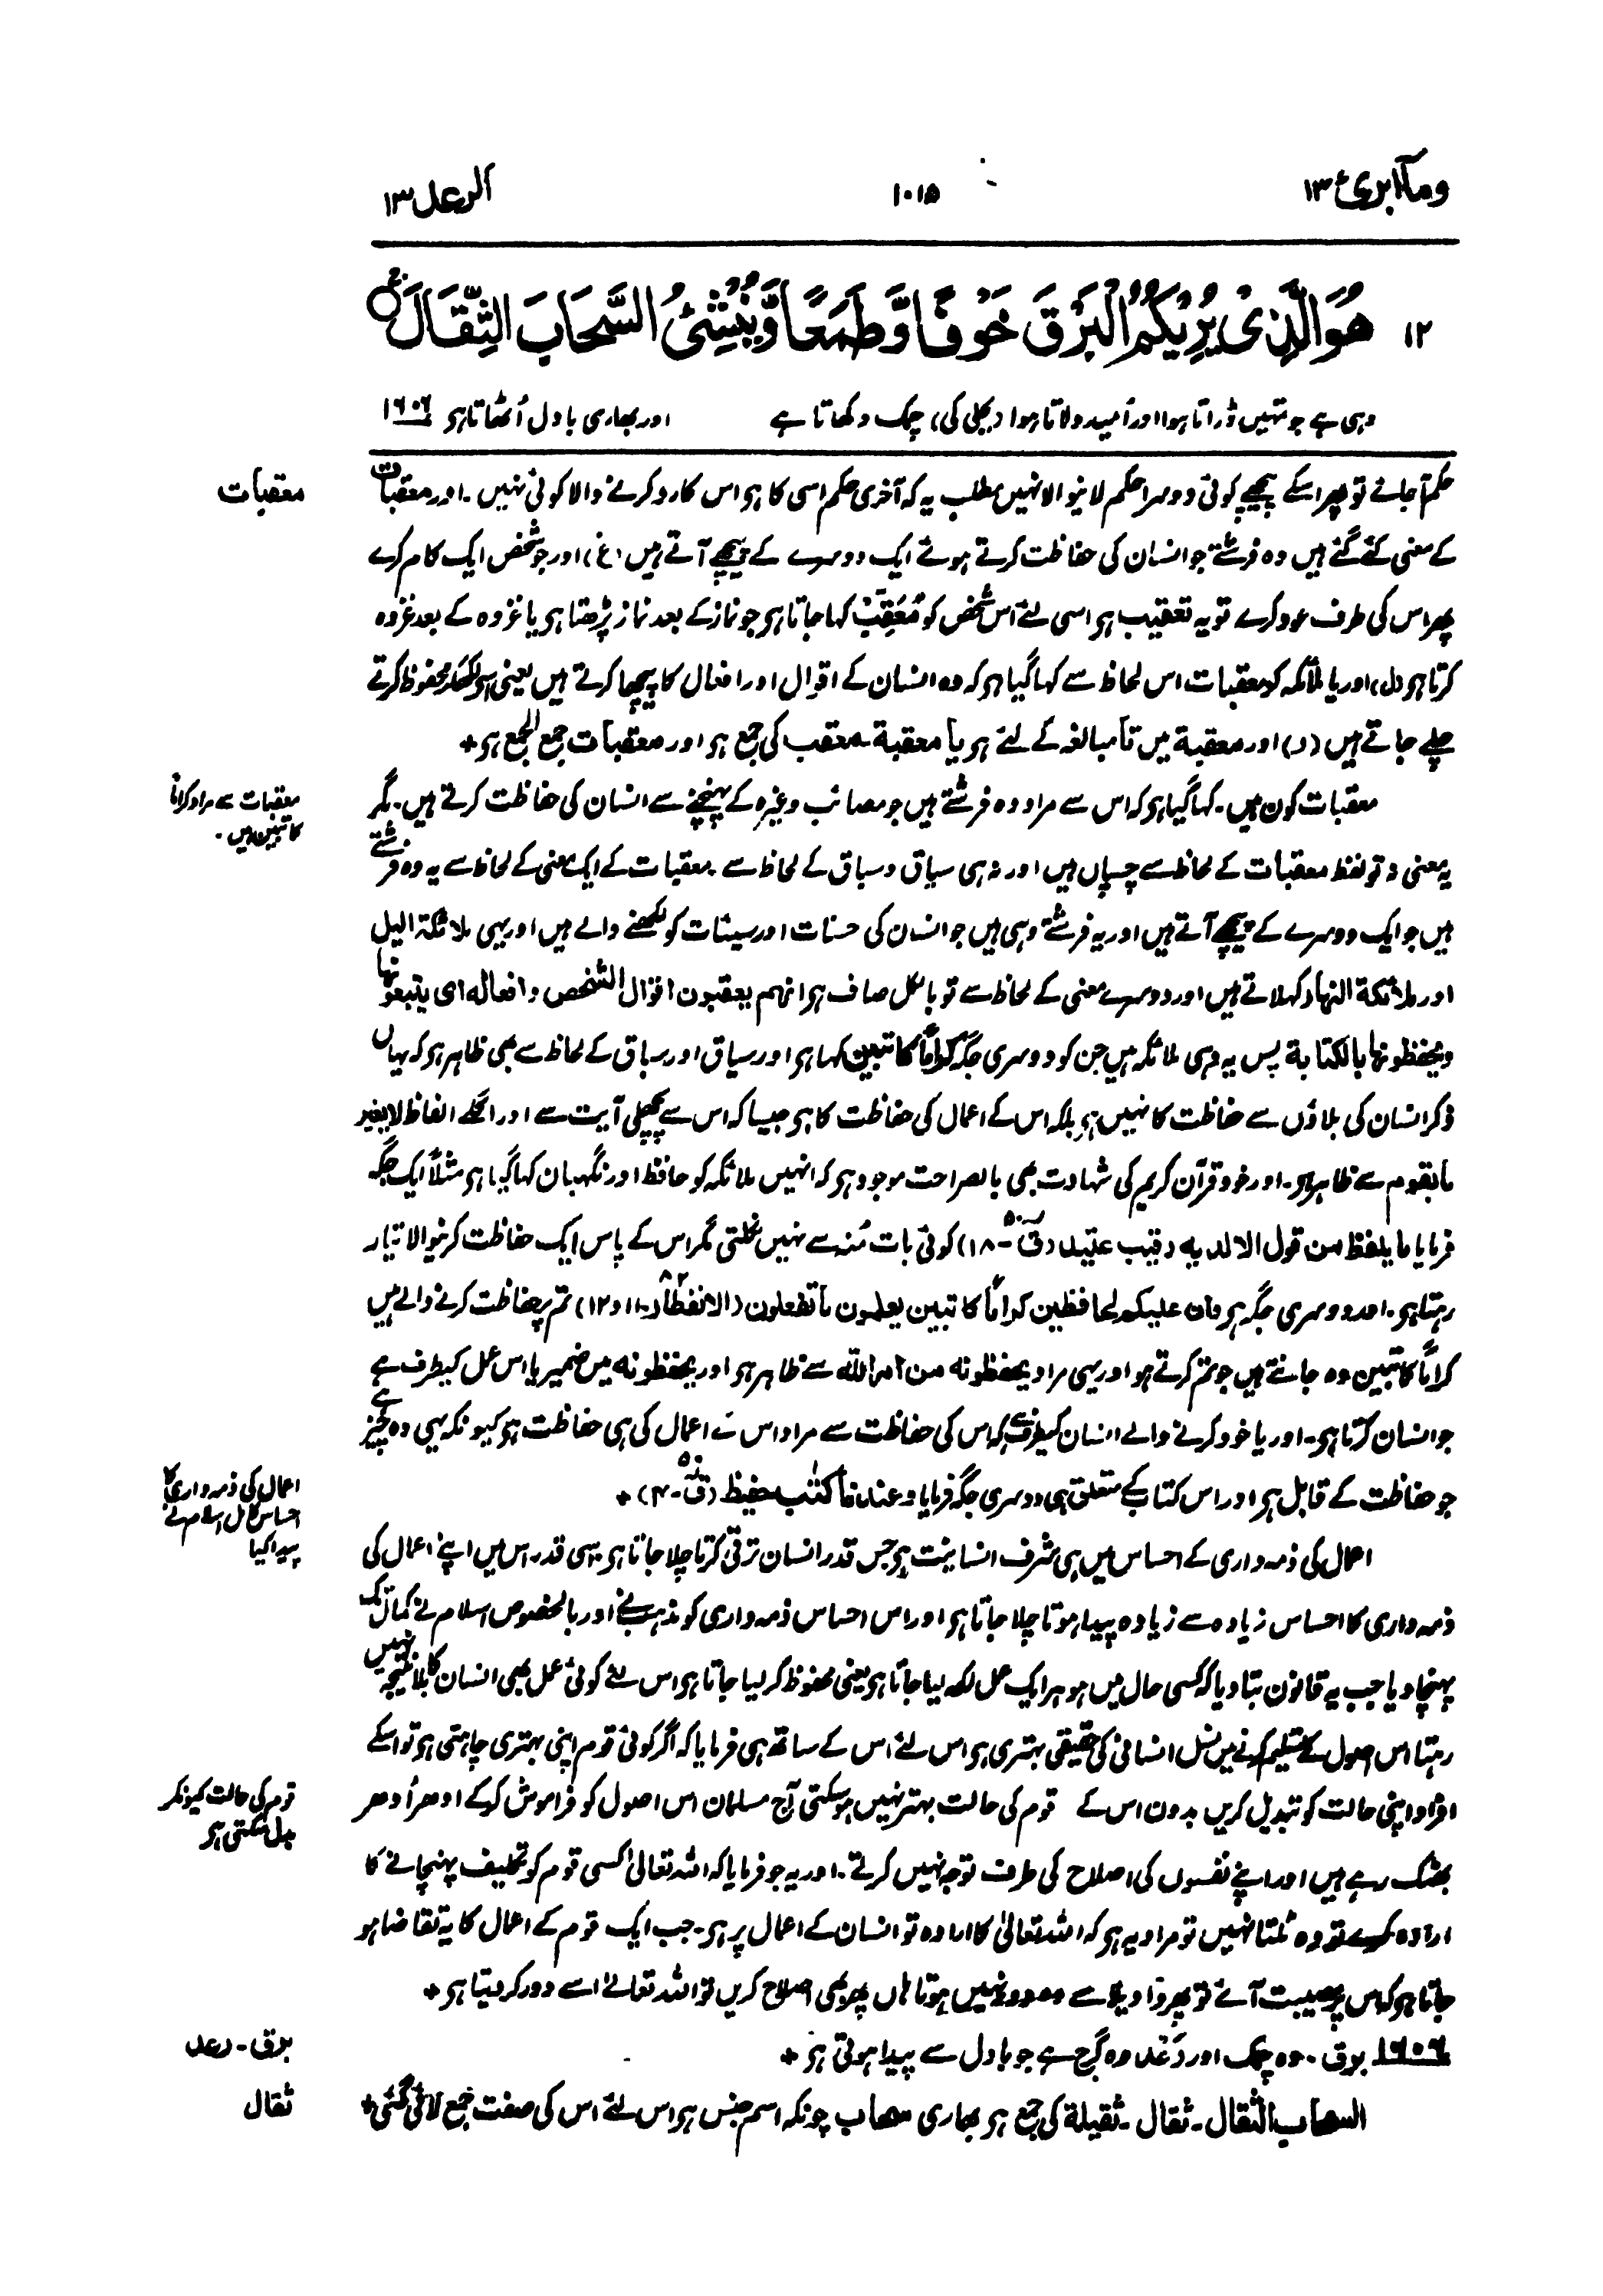 ومآ ابرئ ۱۳
۱۰۱۵
الرعد ۱۳
۱۲ هُوَ الَّذِىْ يُرِيْكُمُ الْبَرْقَ خَوْفًا وَّطَمَعًا وَّيُنْشِئُ السَّحَابَ الثِّقَالَ
وہی ہے جو تمہیں ڈراتا ہوا اور اُمید دلاتا ہوا (بجلی کی) چمک دکھاتا ہے اور بھاری بادل اُٹھاتا ہو ۱۶۰۶
حکم آجائے تو پھر اسکے پیچھے کوئی دوسرا حکم لانیوالا نہیں مطلب یہ کہ آخری حکم اسی کا ہو اس کا رد کرنے والا کوئی نہیں ۔ اور معقبات
معقبات
کے معنی کئے گئے ہیں وہ فرشتے جو انسان کی حفاظت کرتے ہوئے ایک دوسرے کے پیچھے آتے ہیں (غ) اور جو شخص ایک کام کرے
پھر اس کی طرف عود کرے تو یہ تعقیب ہو اسی لئے اس شخص کو مُعَقِّبْ کہا جاتا ہو جو نماز کے بعد نماز پڑھتا ہو یا غزوہ کے بعد غزوہ
کرتا ہو (ل) اور یا ملائکہ کو معقبات اس لحاظ سے کہا گیا ہو کہ وہ انسان کے اقوال اور افعال کا پیچھا کرتے ہیں یعنی اسے لکھکر محفوظ کرتے
چلے جاتے ہیں (ر) اور معقبة میں تا مبالغہ کے لئے ہو یا معقبة ۔ معقب کی جمع ہو اور معقبات جمع الجمع ہو+
معقبات کون ہیں ۔ کہا گیا ہو کہ اس سے مراد وہ فرشتے ہیں جو مصائب وغیرہ کے پہنچنے سے انسان کی حفاظت کرتے ہیں ۔ مگر
معقبات سے مراد کراماً
کاتبین ہیں ۔
یہ معنی نہ تو لفظ معقبات کے لحاظ سے چسپاں ہیں اور نہ ہی سیاق و سباق کے لحاظ سے ۔ معقبات کے ایک معنی کے لحاظ سے یہ وہ فرشتے
ہیں جو ایک دوسرے کے پیچھے آتے ہیں اور یہ فرشتے وہی ہیں جو انسان کی حسنات اور سیئات کو لکھنے والے ہیں اور یہی ملائکة الیل
اور ملائکة النهار کہلاتے ہیں اور دوسرے معنی کے لحاظ سے تو بالکل صاف ہو انهم یعقبون اقوال الشخص وافعاله ای یتبعونها
ویحفظونها بالکتابة پس یہ وہی ملائکہ ہیں جن کو دوسری جگہ کراماً کاتبین کہا ہو اور سیاق اور سباق کے لحاظ سے بھی ظاہر ہو کہ یہاں
ذکر انسان کی بلاؤں سے حفاظت کا نہیں ہو بلکہ اس کے اعمال کی حفاظت کا ہو جیسا کہ اس سے پچھلی آیت سے اور اگلے الفاظ لا یغیر
ما بقوم سے ظاہر ہو ۔ اور خود قرآن کریم کی شہادت بھی بالصراحت موجود ہو کہ انہیں ملائکہ کو حافظ اور نگہبان کہا گیا ہو مثلاً ایک جگہ
فرمایا ما یلفظ من قول الا لدیه رقیب عتید (ق ۵۰ ۔ ۱۸) کوئی بات مُنہ سے نہیں نکلتی مگر اس کے پاس ایک حفاظت کرنیوالا تیار
رہتا ہو ۔ اور دوسری جگہ ہو وان علیکم لحافظین کراماً کاتبین یعلمون ما تفعلون (الانفطار ۸۲ ۔ ۱۰ و ۱۲) تم پر حفاظت کرنے والے ہیں
کراماً کاتبین وہ جانتے ہیں جو تم کرتے ہو اور یہی مراد یحفظونه من امر الله سے ظاہر ہو اور یحفظونه میں ضمیر یا اس عمل کیطرف ہے
جو انسان کرتا ہو ۔ اور یا خود کرنے والے انسان کیطرف ہے کہ اس کی حفاظت سے مراد اس کے اعمال کی ہی حفاظت ہو کیونکہ یہی وہ چیز ہے
جو حفاظت کے قابل ہو اور اس کتاب کے متعلق ہی دوسری جگہ فرمایا وعندنا کتٰب حفیظ (ق ۵۰ ۔ ۴) +
اعمال کی ذمہ داری کا
احساس کامل اسلام نے
پیدا کیا
اعمال کی ذمہ داری کے احساس میں ہی شرف انسانیت ہو جس قدر انسان ترقی کرتا چلا جاتا ہو یہی قدر اس میں اپنے اعمال کی
ذمہ داری کا احساس زیادہ سے زیادہ پیدا ہوتا چلا جاتا ہو اور اس احساس ذمہ داری کو مذہب نے اور بالخصوص اسلام نے کمال تک
پہنچا دیا جب یہ قانون بتا دیا کہ کسی حال میں ہو ہر ایک عمل لکھ لیا جاتا ہو یعنی محفوظ کر لیا جاتا ہو اس لئے کوئی عمل بھی انسان کا بلا نتیجہ نہیں
رہتا اس اصول کے تسلیم کرنے میں نسل انسانی کی حقیقی بہتری ہو اس لئے اس کے ساتھ ہی فرمایا کہ اگر کوئی قوم اپنی بہتری چاہتی ہو تو اسکے
افراد اپنی حالت کو تبدیل کریں بدون اس کے قوم کی حالت بہتر نہیں ہو سکتی آج مسلمان اس اصول کو فراموش کرکے ادھر اُدھر
قوم کی حالت کیونکر
بدل سکتی ہو
بھٹک رہے ہیں اور اپنے نفسوں کی اصلاح کی طرف توجہ نہیں کرتے ۔ اور یہ جو فرمایا کہ اللہ تعالیٰ کسی قوم کو تکلیف پہنچانے کا
ارادہ کرے تو وہ ٹلتا نہیں تو مراد یہ ہو کہ اللہ تعالیٰ کا ارادہ تو انسان کے اعمال پر ہو ۔ جب ایک قوم کے اعمال کا یہ تقاضا ہو
جاتا ہو کہ اس پر مصیبت آئے تو پھر واویلا سے وہ دور نہیں ہوتا ہاں پھر بھی اصلاح کریں تو اللہ تعالیٰ اسے دور کر دیتا ہو +
۱۶۰۶ برق ۔ وہ چمک اور رَعْد وہ گرج ہے جو بادل سے پیدا ہوتی ہو +
برق ۔ رعد
السحاب الثقال ۔ ثقال ۔ ثقیلة کی جمع ہو بھاری سحاب چونکہ اسم جنس ہو اس لئے اس کی صفت جمع لائی گئی +
ثقال